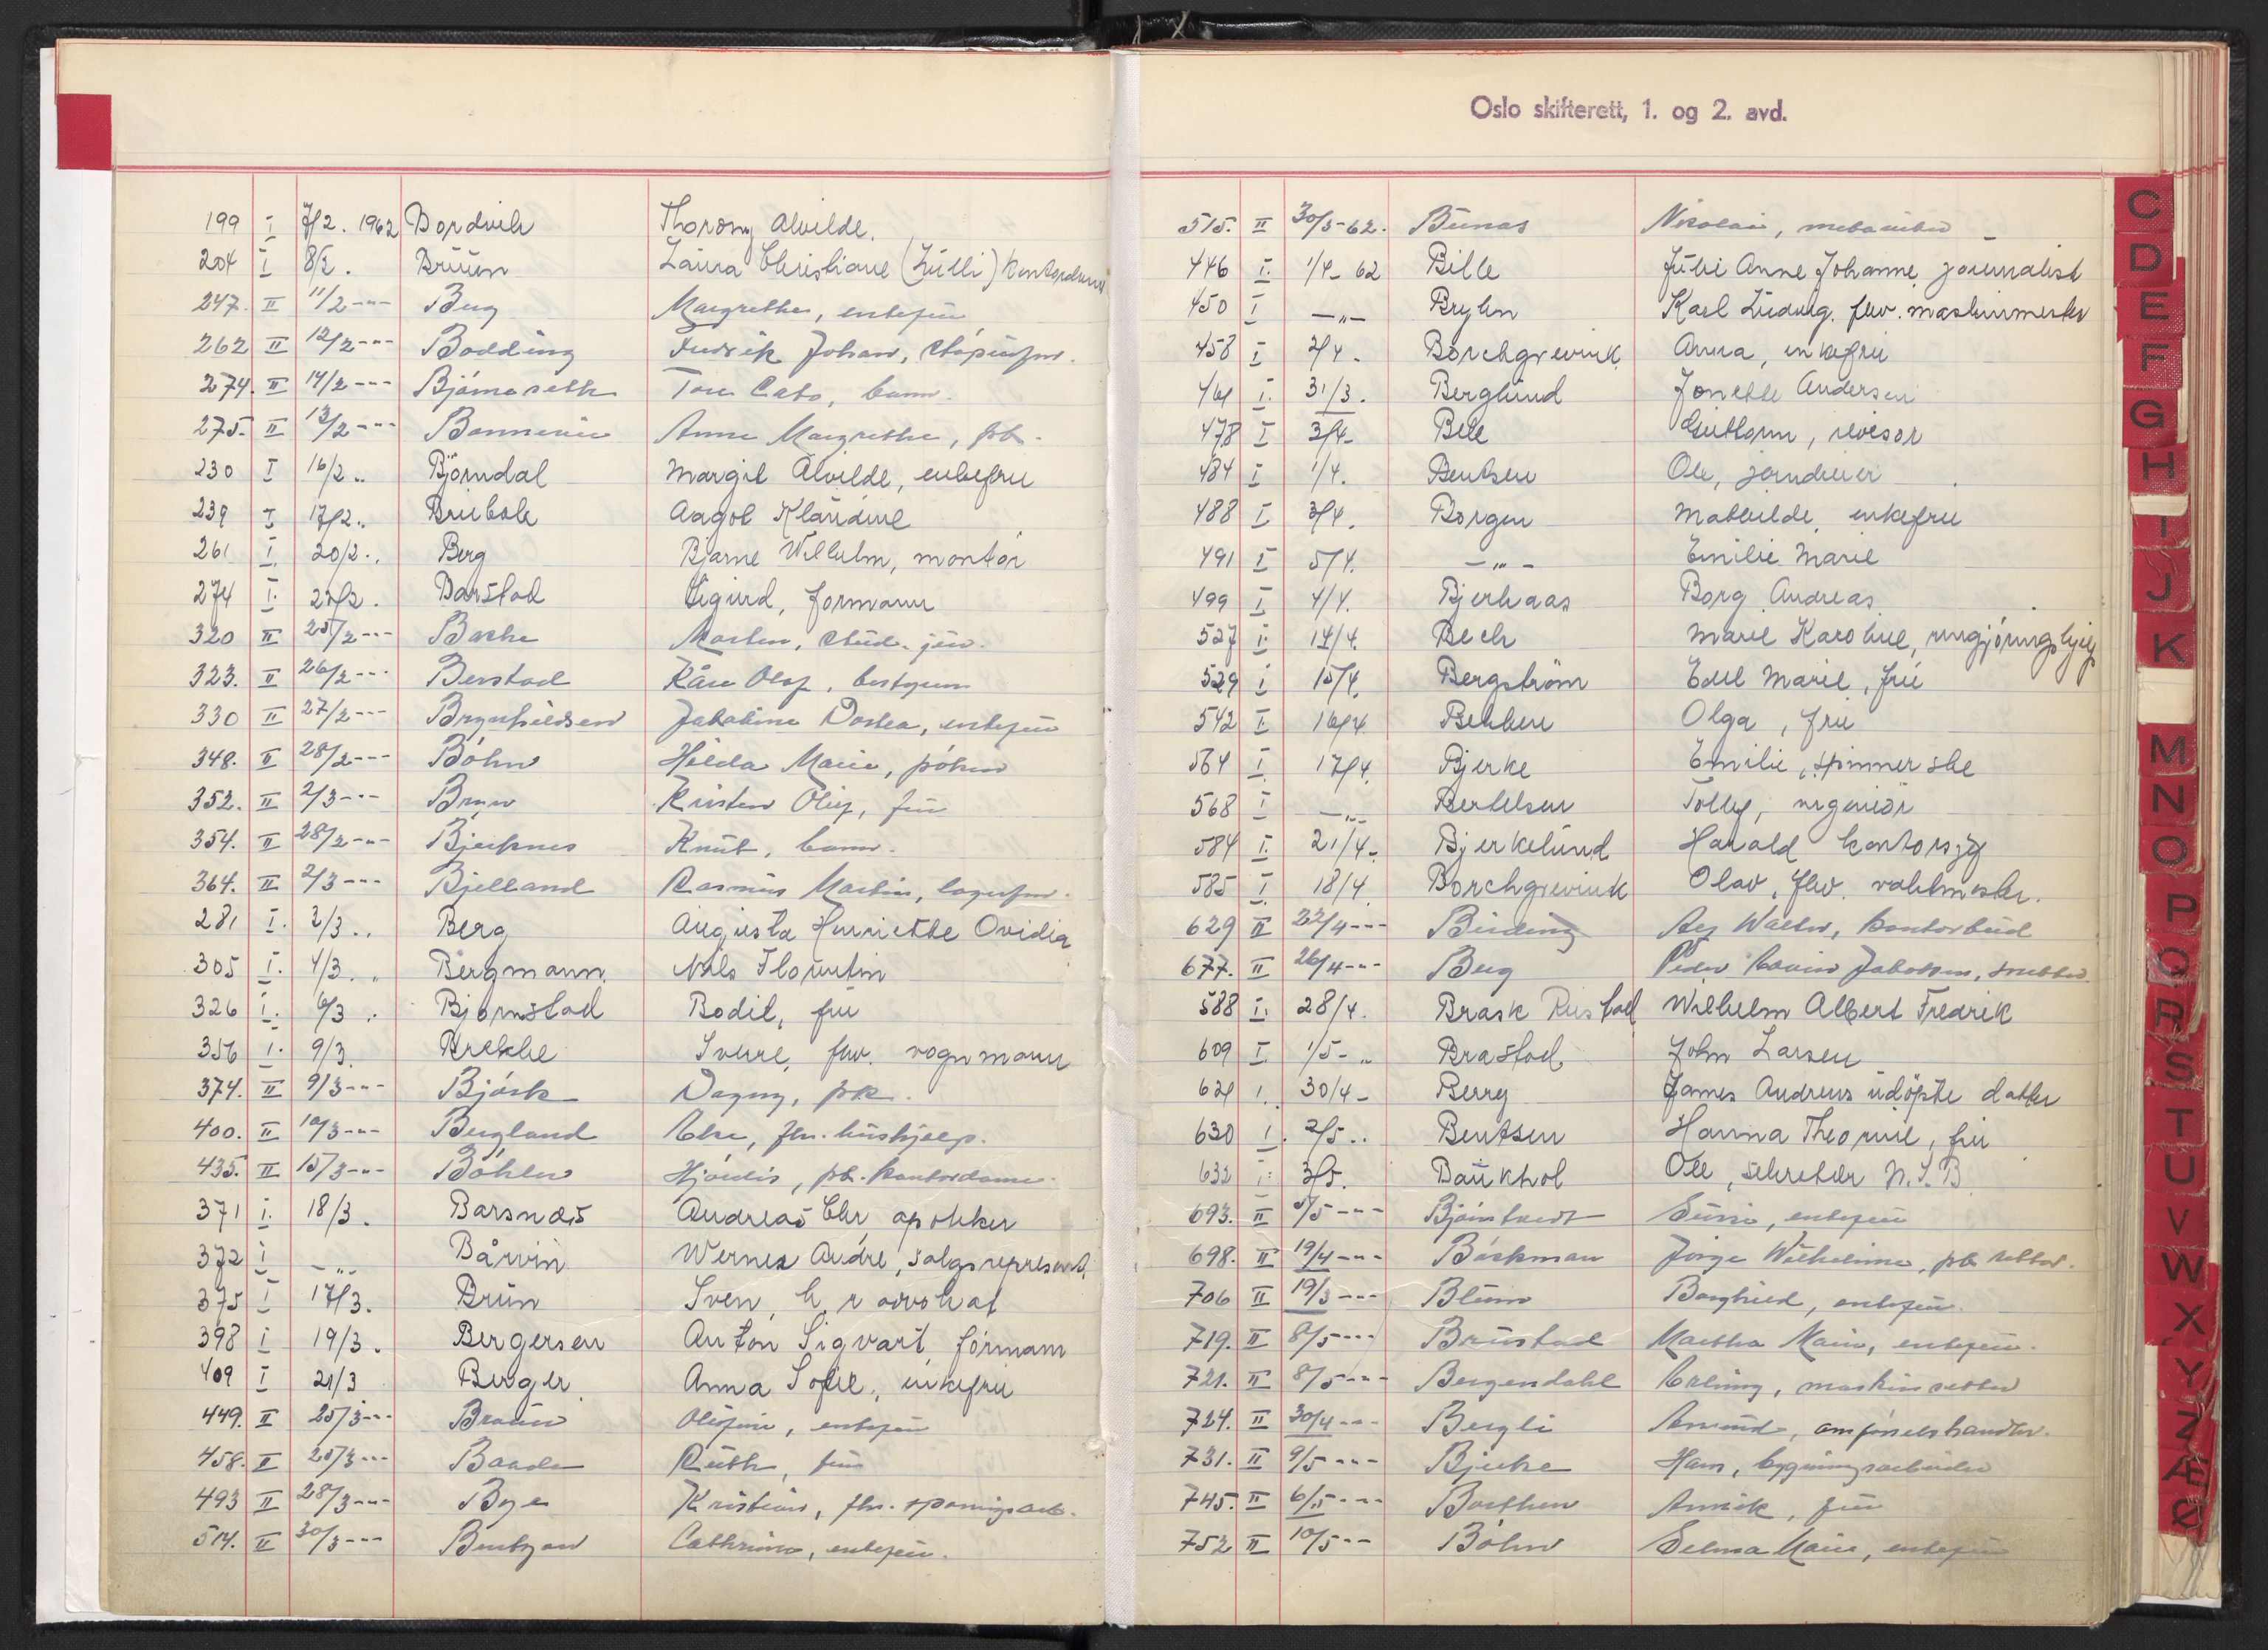 Oslo skifterett, 1. og 2. avd.
199 I 7/2. 1962 Bordvik Thorony Alvilde.
204 I 8/2. Brüun Laura Christiane (Lulli) kontordame
247. II 11/2 -"- Berg Margrethe, enkefru
262 II 12/2 -"- Bodding Fredrik Johan,
274. II 14/2 -"- Bjørnseth Tom Cato, barn.
275. II 13/2 -"- Bonnevie Anne Margrethe, frk.
230 I 16/2 " Bjørndal Margit Alvilde, enkefru
239 I 17/2 " Aagot Klaudine
261 I. 20/2 . Berg Bjarne Wilhelm, montør
274 I. 20/2 . Barstad Sigurd, formann
320 II 25/2 -"- Bache Morten, stud. jur.
323. II 26/2 -"- Berstad Kåre Olaf, bestyrer
330 II 27/2 -"- Brynhildsen Jakobine Dorthea, enkefru
348. II 28/2 -"- Bøhn Hilda Marie, frøken
352. II 2/3 -"- Bryn Kirsten Oliey, fru
354. II 28/2 -"- Bjerknes Knut, barn.
364. II 2/3 -"- Bjelland Rasmus Martin, lagerfm.
281 I. 3/3 . . Berg Augusta Henriette Ovidia
305 I. 4/3 . . Bergmann. Nils Florentin
326 I. 6/3 . Bjørnstad Bodil, fru
356 I. 9/3. Brekke Sverre, fhv. vognmann
374. II 9/3 -"- Bjørk Dagny, frk.
400. II 10/3 -"- Bergland Else, fhv. hushjelp.
435. II 15/3 -"- Bøhler Hjørdis, frk. kontordame.
371 I. 18/3 . Barsnæs Andreas Chr, apoteker
372 I -"- Bårvin Werner Andre, salgsrepresent.
375 I 17/3. Brun Sven, h. r advokat
398 I 19/3 . Bergersen Anton Sigvart, formann
409 I 21/3 Berger Anna Sofie, enkefru
449. II 25/3 -"- Braun Olefine, enkefru
458. II 25/3 -"- Baade Ruth, fru
493 II 28/3 -"- Bye Kristian, fhv. sporveisarb.
514. II 30/3 -"- Bentzen Cathrine, enkefru.
515. II 30/3-62. Bunas Nikolai, mekaniker
446 I. 1/4- 62 Bille Julie Anne Johanne, journalist
450 I -"- Bryhn Karl Ludvig. fhv. maskinmester
458 I 2/4 . Borchgrevink Anna, enkefru
461 I. 31/3. Berglund Jonette Andersen
478 I 3/4- Bele Guttorm, revisor
484 I 1/4. Bentsen Ole, jerndreier
488 I 3/4. Borgen Mathilde, enkefru
491 I 5/4. -"- Emilie Marie
499 I 4/4. Bjerhaas Borg Andreas
527 I. 14/4. Bech Marie Karoline, rengjøringshjelp
529 I 15/4. Bergstrøm Edel Marie, fru
542 I. 16/4 Olga, fru
564 I. 17/4. Bjerke Emilie, spinnerske
568 I -"- Bertelsen Tollef, ingeniør
584 I. 21/4-. Bjerkelund Harald kontorsjef
585 I. 18/4. Borchgrevink Olav, fhv. vaktmester.
629 II 22/4 -"- Binding Aey Walter, kontorbud
677. II 26/4 -"- Berg Peder Edvin Jakobsen, snekker.
588 I. 28/4. Brask Rustad Wilhelm Albert Fredrik
609 I 1/5 - " Brastad. John Larsen
621 I. 30/4 - Berrg James Andrews udøpte datter
630 I. 2/5 . . Bentsen Hanna Theonie, fru
632 I. 3/5. Baukhol Ole, sekretær N. S. B
693. II 5/5 -"- Bjørnstvedt Signe, enkefru
698. II 19/4 -"- Bøckman Jørge Wilhelmine, frk. rektor.
706 II 19/3 -"- Blum Borghild, enkefru.
719. II 8/5 -"- Brustad Martha Marie, enkefru.
721. II 8/5 -"- Bergendahl Erling, maskinsetter
724. II 30/4 -"- Bergli Amund, omførselshandler.
731. II 9/5 -"- Bjerke Hans, bygningsarbeider
745. II 6/5 -"- Borthen Annik, fru
752 II 10/5 -"- Bøhn Selma Marie, enkefru
C
D
E
F
G
H
I
J
K
M
N
O
P
Q
R
S
T
U
V
W
X
Y
Z
Æ
Ø